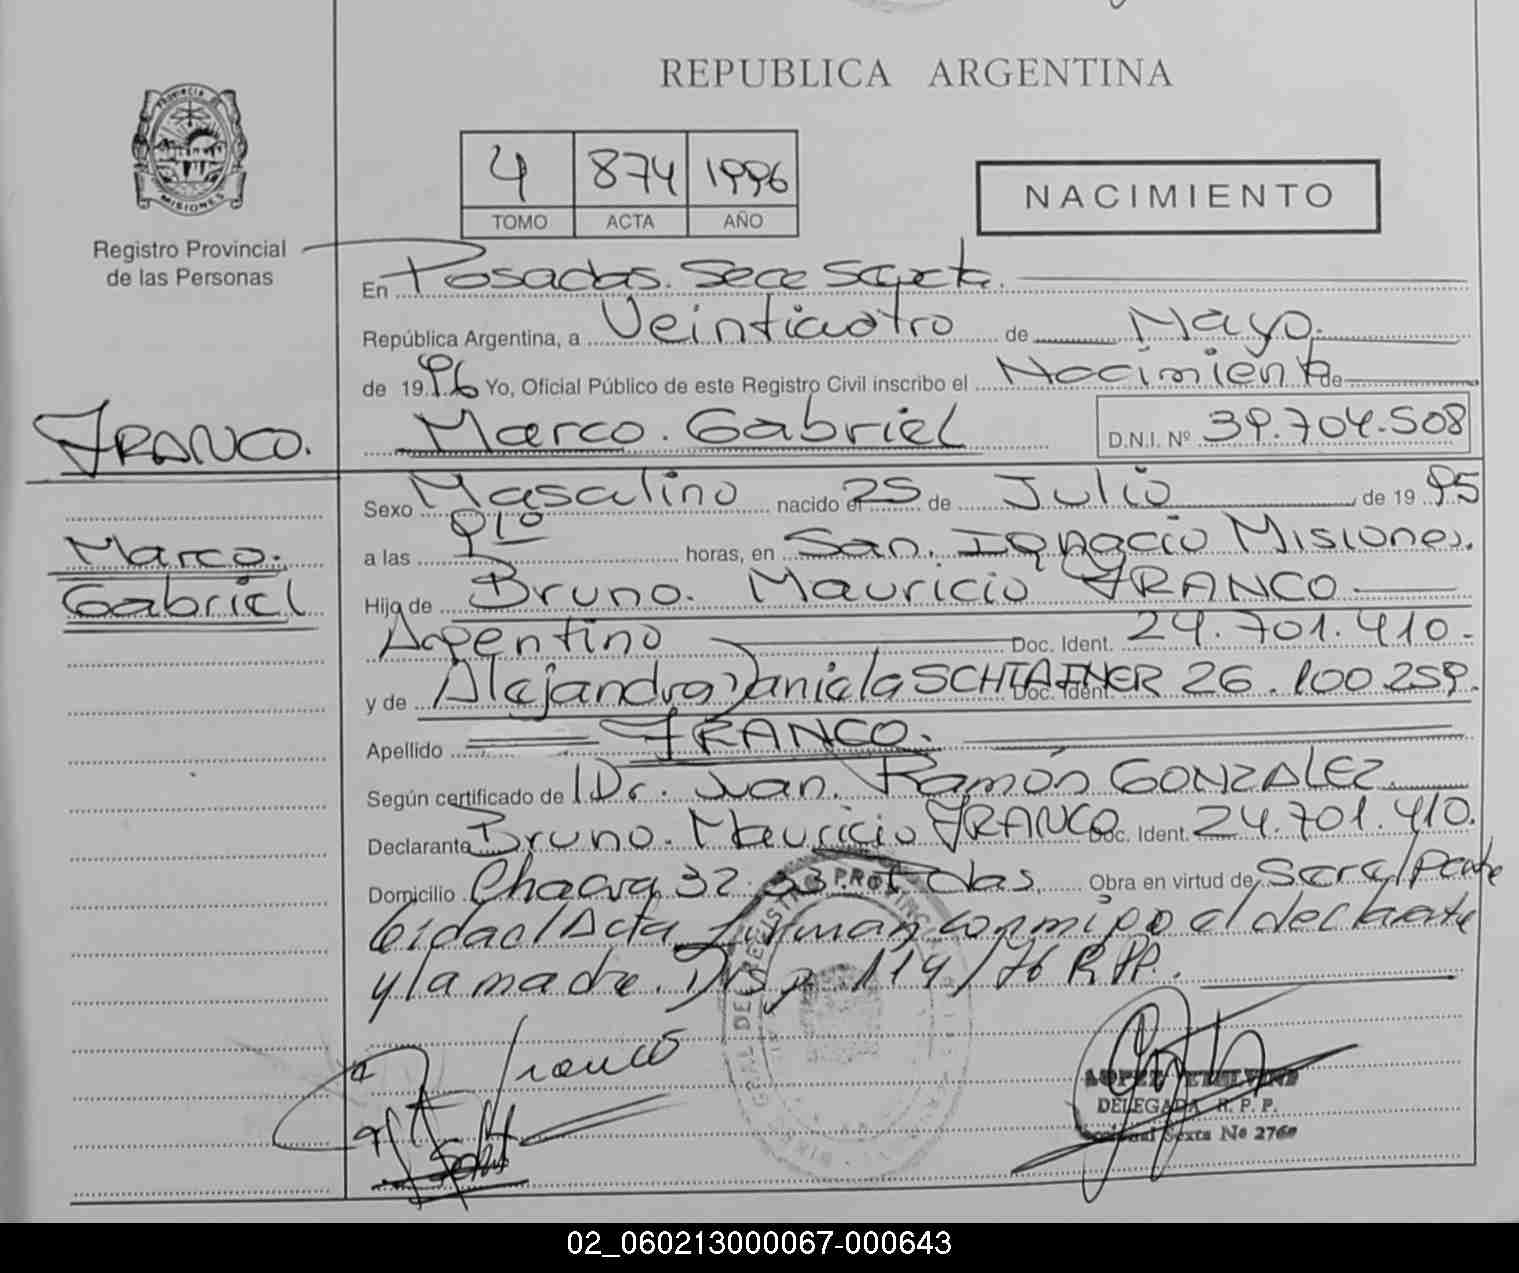 REPUBLICA ARGENTINA
PROVINCIA DE
MISIONES
Registro Provincial
de las Personas
4 874 1996
TOMO ACTA AÑO
NACIMIENTO
En Posadas. Secc Sexta.
República Argentina, a Veinticuatro de Mayo.
de 1996 Yo, Oficial Público de este Registro Civil inscribo el Nacimiento de
FRANCO.
Marco. Gabriel D.N.I. Nº 39.704.508
Marco.
Gabriel
Sexo Masculino nacido el 25 de Julio de 1995
a las horas, en San. Ignacio Misiones.
Hijo de Bruno. Mauricio FRANCO
Argentino Doc. Ident. 24.701.410.
y de Alejandra Daniela Doc. Ident. 26.100.259.
Apellido FRANCO.
Según certificado de Dr. Juan. Ramón GONZALEZ.
Declarante Bruno. Mauricio FRANCO Doc. Ident. 24.701.410.
Domicilio Chacra 32.33. Pdas. Obra en virtud de
Acta firman conmigo el declarante
y la madre. Disp. 114/76 R.P.P.
Franco
LOPEZ
DELEGADA R. P. P.
Sexta Nº 2760
02_060213000067-000643